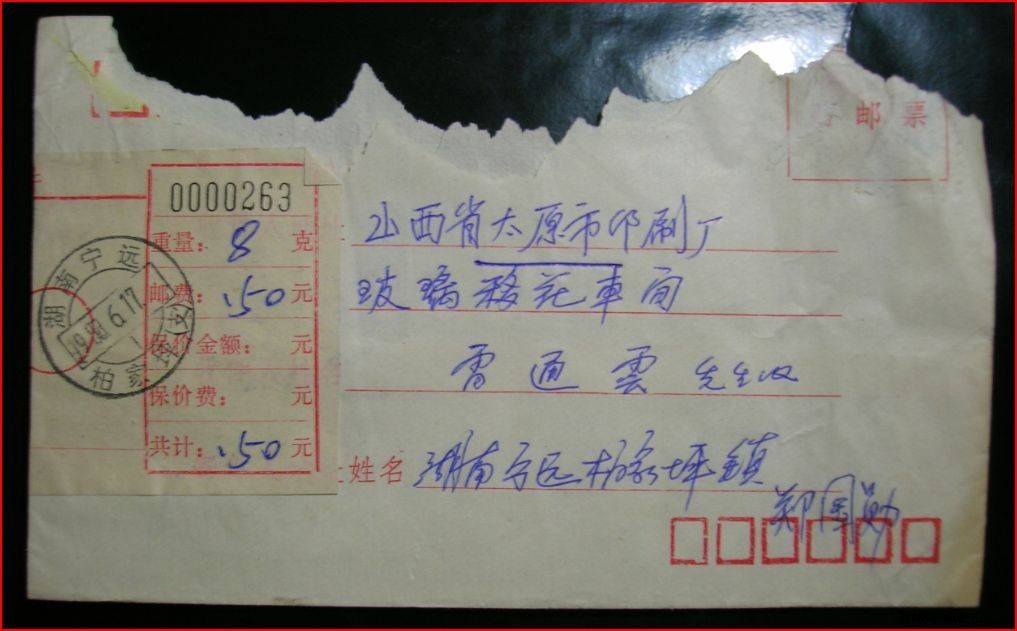 邮票
0000263
重量: 8 克
邮费: .50 元
保价金额: 元
保价费: 元
共计: .50 元
湖南宁远
6.17
柏家坪
山西省太原市印刷厂
玻璃移花车间
通雲 先生收
姓名 湖南宁远柏家坪鎮
郑国勋